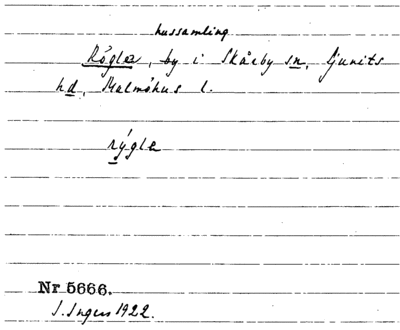 hussamling
Rögla, by i Skårby sn, Ljunits
hd, Malmöhus l.
rýgla
Nr 5666.
I. Ingers 1922.